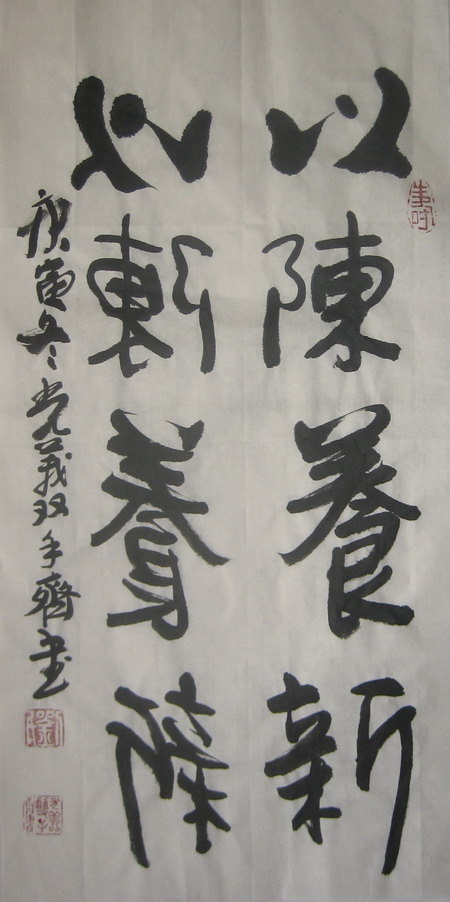 以陳養新
以陳養新
庚寅冬光義双手齊書